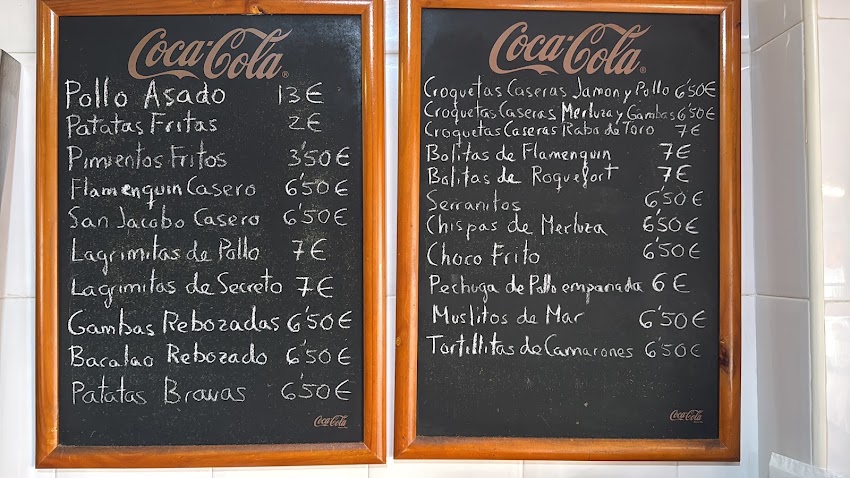 Coca-Cola
Pollo Asado 13€
Patatas Fritas 2€
Pimientos Fritos 3'50€
Flamenquin Casero 6'50€
San Jacobo Casero 6'50€
Lagrimitas de Pollo 7€
Lagrimitas de Secreto 7€
Gambas Rebozadas 6'50€
Bacalao Rebozado 6'50€
Patatas Bravas 6'50€
Coca-Cola
Coca-Cola
Croquetas Caseras Jamon y Pollo 6'50€
Croquetas Caseras Merluza y Gambas 6'50€
Croquetas Caseras Rabo de Toro 7€
Bolitas de Flamenquin 7€
Bolitas de Roquefort 7€
Serranitos 6'50€
Chispas de Merluza 6'50€
Choco Frito 6'50€
Pechuga de Pollo empanada 6€
Muslitos de Mar 6'50€
Tortillitas de Camarones 6'50€
Coca-Cola